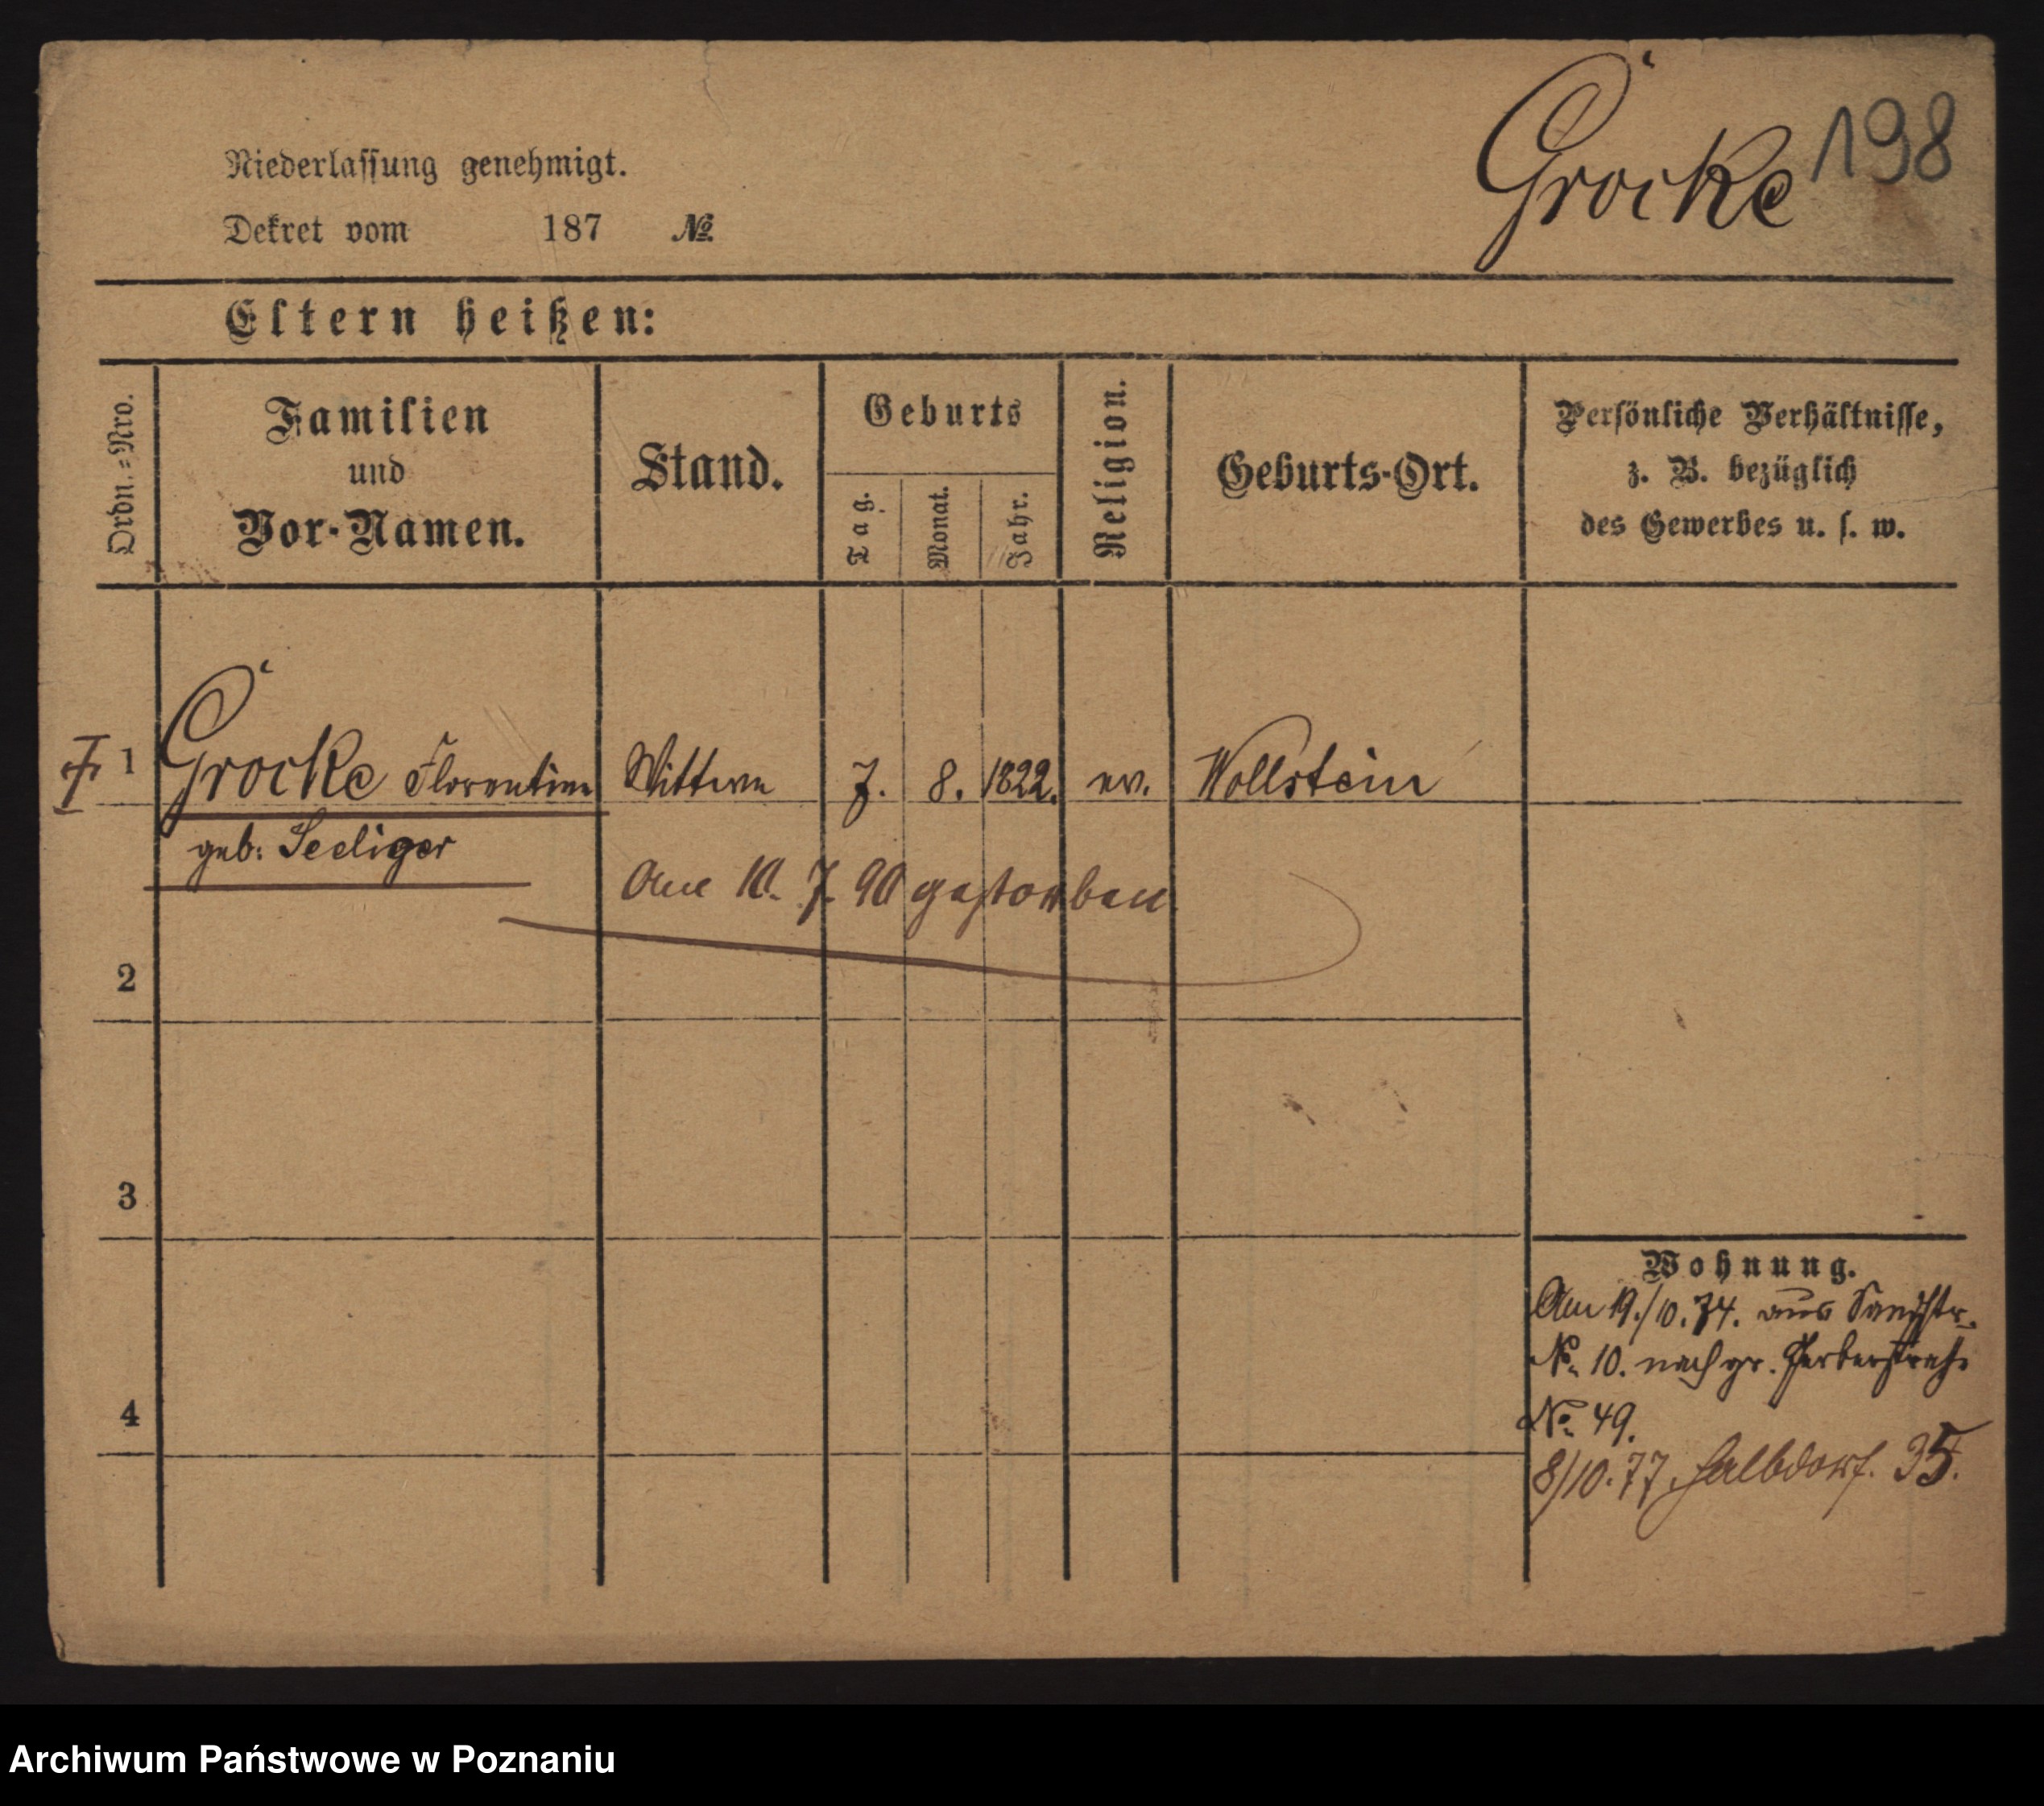 Grocke 198
Niederlassung genehmigt.
Dekret vom 187 №
Eltern heißen:
Ordn.=Nro.
Familien
und
Vor-Namen.
Stand.
Geburts
Tag.
Monat.
Jahr.
Religion.
Geburts-Ort.
Persönliche Verhältnisse,
z. B. bezüglich
des Gewerbes u. s. w.
1 Grocke Florentine Wittwe 7. 8. 1822. ev. Wollstein
geb: Seeliger
Am 10. 7. 90 gestorben.
2
3
4
Wohnung.
Am 19./10.74. aus Sandstr.
No. 10. nach gr. Gerberstraße
No. 49.
8/10.77 Halbdorf. 35.
Archiwum Państwowe w Poznaniu